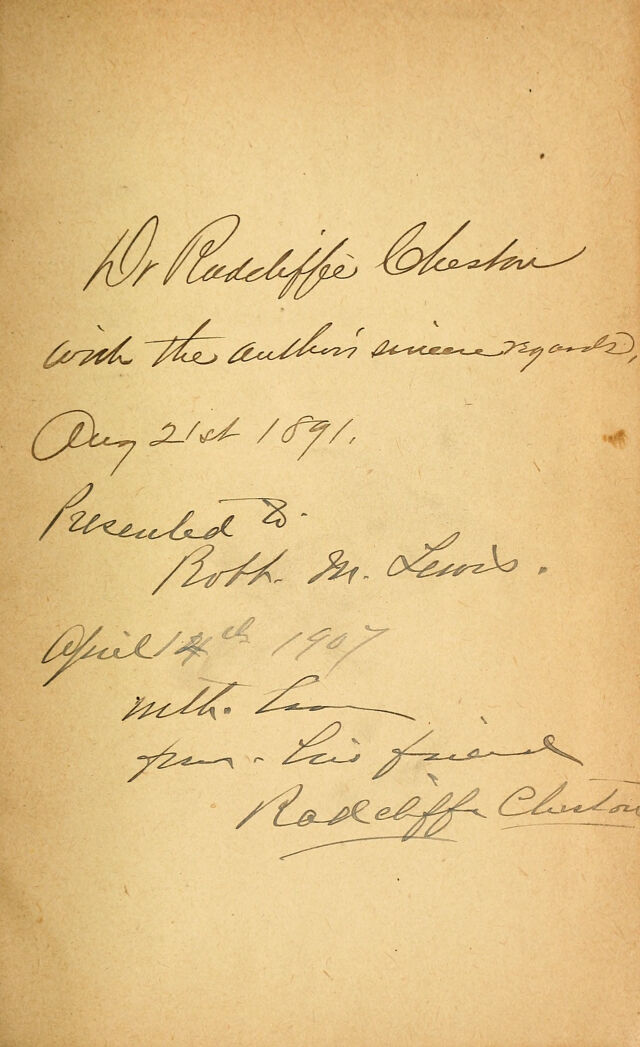 Dr Radcliffe Cheston
with the author's sincere regards,
Aug 21st 1891.
Presented to
Robt. M. Lewis.
April 14th 1907
with
from his friend
Radcliffe Cheston